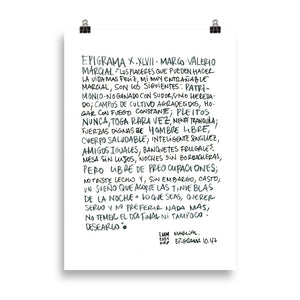 EPIGRAMA X·XLVII· MARCO VALERIO
MARCIAL: LOS PLACERES QUE PUEDEN HACER
LA VIDA MÁS FELIZ, MI MUY ENTRAÑABLE
MARCIAL, SON LOS SIGUIENTES: PATRI-
MONIO NO GANADO CON SUDOR, SINO HEREDA-
DO; CAMPOS DE CULTIVO AGRADECIDOS, HO-
GAR CON FUEGO CONSTANTE; PLEITOS
NUNCA, TOGA RARA VEZ, MENTE TRANQUILA;
FUERZAS DIGNAS DE HOMBRE LIBRE,
CUERPO SALUDABLE; INTELIGENTE SENCILLEZ,
AMIGOS IGUALES, BANQUETES FRUGALES,
MESA SIN LUJOS, NOCHES SIN BORRACHERAS,
PERO LIBRE DE PREOCUPACIONES,
NO TRISTE LECHO Y, SIN EMBARGO, CASTO,
UN SUEÑO QUE ACORTE LAS TINIEBLAS
DE LA NOCHE· LO QUE SEAS, QUERER
SERLO Y NO PREFERIR NADA MÁS,
NO TEMER EL DÍA FINAL NI TAMPOCO
DESEARLO.
MARCIAL.
EPIGRAMA 10.47